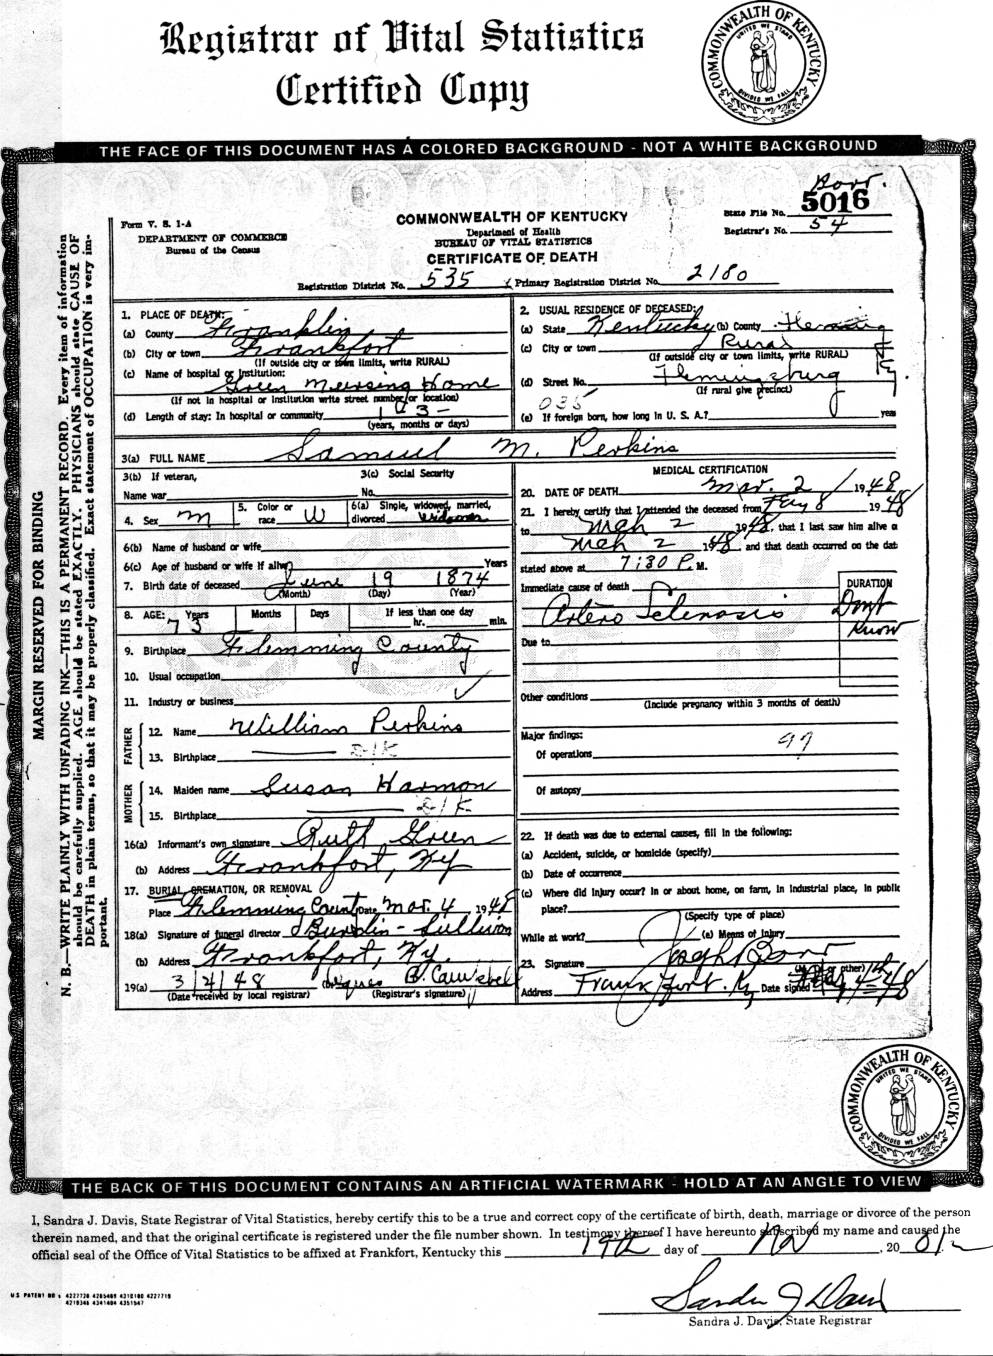 Registrar of Vital Statistics
Certified Copy
COMMONWEALTH OF KENTUCKY
UNITED WE STAND
DIVIDED WE FALL
THE FACE OF THIS DOCUMENT HAS A COLORED BACKGROUND - NOT A WHITE BACKGROUND
MARGIN RESERVED FOR BINDING
N. B.—WRITE PLAINLY WITH UNFADING INK—THIS IS A PERMANENT RECORD. Every item of information
should be carefully supplied. AGE should be stated EXACTLY. PHYSICIANS should state CAUSE OF
DEATH in plain terms, so that it may be properly classified. Exact statement of OCCUPATION is very im-
portant.
Form V. S. 1-A
DEPARTMENT OF COMMERCE
Bureau of the Census
COMMONWEALTH OF KENTUCKY
Department of Health
BUREAU OF VITAL STATISTICS
CERTIFICATE OF DEATH
State File No. 5016
Registrar's No. 54
Registration District No. 535 Primary Registration District No. 2180
1. PLACE OF DEATH:
(a) County Franklin
(b) City or town Frankfort
(If outside city or town limits, write RURAL)
(c) Name of hospital or institution:
Green Nursing Home
(If not in hospital or institution write street number or location)
(d) Length of stay: In hospital or community
(years, months or days)
2. USUAL RESIDENCE OF DECEASED:
(a) State Kentucky (b) County Fleming
(c) City or town Rural
(If outside city or town limits, write RURAL)
(d) Street No. Flemingsburg
(If rural give precinct)
035
(e) If foreign born, how long in U. S. A.? years
3(a) FULL NAME Samuel M. Perkins
3(b) If veteran,
Name war
3(c) Social Security
No.
4. Sex M 5. Color or race W 6(a) Single, widowed, married, divorced Widower
6(b) Name of husband or wife
6(c) Age of husband or wife if alive Years
7. Birth date of deceased June 19 1874
(Month) (Day) (Year)
8. AGE: Years 73 Months Days If less than one day
hr. min.
9. Birthplace Flemming County
10. Usual occupation
11. Industry or business
FATHER
12. Name William Perkins
13. Birthplace D/K
MOTHER
14. Maiden name Susan Harmon
15. Birthplace D/K
16(a) Informant's own signature Ruth Green
(b) Address Frankfort, Ky
17. BURIAL, CREMATION, OR REMOVAL
Place Flemming County Date Mar. 4, 1948
18(a) Signature of funeral director
(b) Address Frankfort, Ky.
19(a) 3/4/48
(Date received by local registrar) (Registrar's signature)
MEDICAL CERTIFICATION
20. DATE OF DEATH Mar. 2 1948
21. I hereby certify that I attended the deceased from Feby 8 1948
to Mch 2 1948, that I last saw him alive o
Mch 2 1948 and that death occurred on the dat
stated above at 7:30 P.M.
Immediate cause of death
Artero Sclerosis
DURATION
Dont
Know
Due to
Other conditions
(Include pregnancy within 3 months of death)
Major findings: 97
Of operations
Of autopsy
22. If death was due to external causes, fill in the following:
(a) Accident, suicide, or homicide (specify)
(b) Date of occurrence
(c) Where did injury occur? In or about home, on farm, in industrial place, in public
place?
(Specify type of place)
While at work? (e) Means of injury
23. Signature Joseph Barr
Address Frankfort. Ky Date signed
COMMONWEALTH OF KENTUCKY
UNITED WE STAND
DIVIDED WE FALL
THE BACK OF THIS DOCUMENT CONTAINS AN ARTIFICIAL WATERMARK - HOLD AT AN ANGLE TO VIEW
I, Sandra J. Davis, State Registrar of Vital Statistics, hereby certify this to be a true and correct copy of the certificate of birth, death, marriage or divorce of the person
therein named, and that the original certificate is registered under the file number shown. In testimony thereof I have hereunto subscribed my name and caused the
official seal of the Office of Vital Statistics to be affixed at Frankfort, Kentucky this 19th day of Nov, 20
Sandra J Davis
Sandra J. Davis, State Registrar